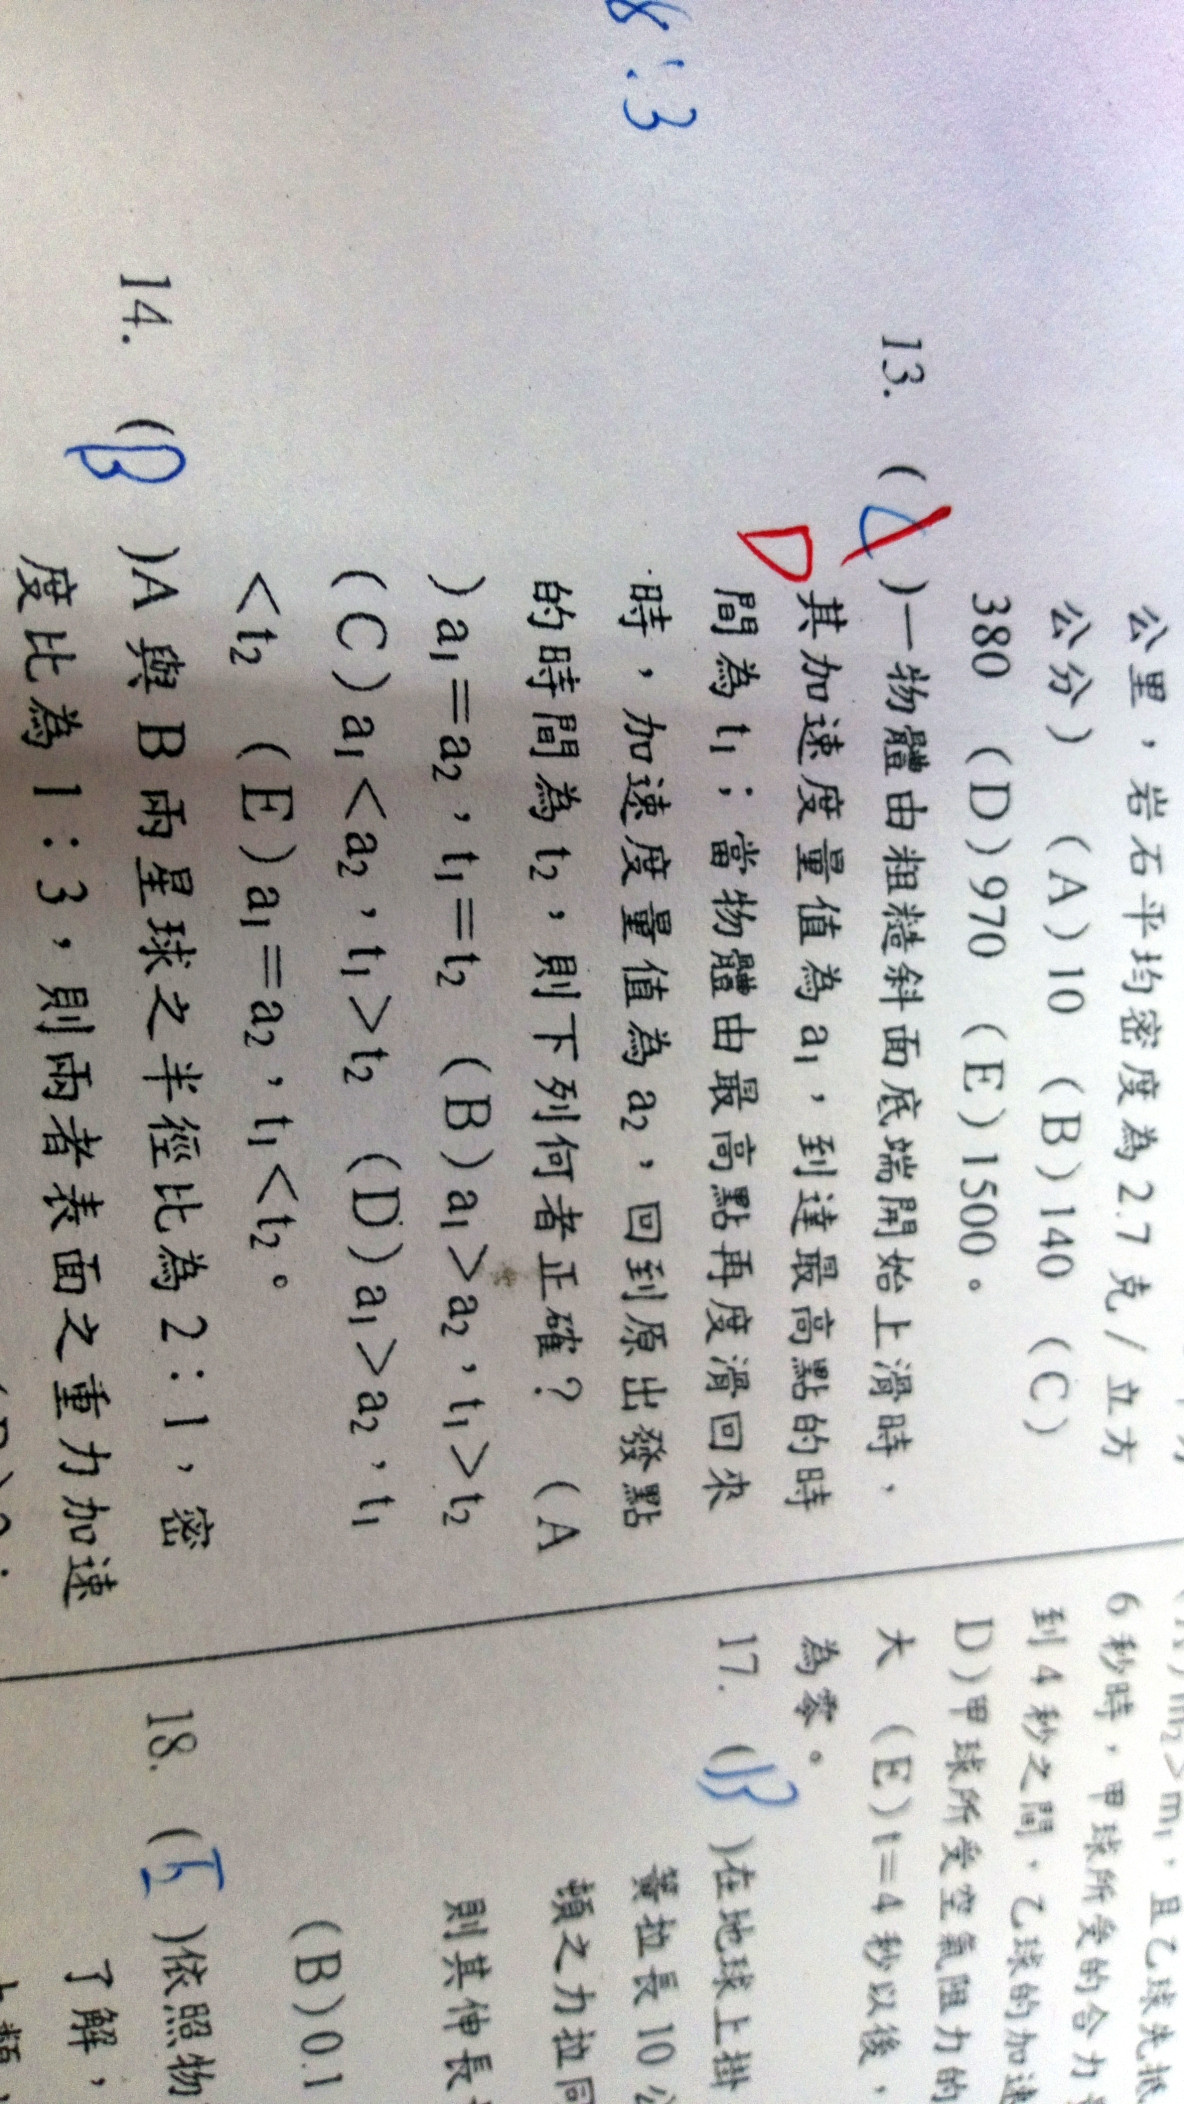 8:3
公里，岩石平均密度為2.7克/立方
公分） (A)10 (B)140 (C)
380 (D)970 (E)1500。
13. ( )一物體由粗糙斜面底端開始上滑時，
D
其加速度量值為a₁，到達最高點的時
間為t₁；當物體由最高點再度滑回來
時，加速度量值為a₂，回到原出發點
的時間為t₂，則下列何者正確？ (A
)a₁=a₂，t₁=t₂ (B)a₁>a₂，t₁>t₂
(C)a₁<a₂，t₁>t₂ (D)a₁>a₂，t₁
<t₂ (E)a₁=a₂，t₁<t₂。
14. (B)A與B兩星球之半徑比為2:1，密
度比為1:3，則兩者表面之重力加速
m₂>m₁，且乙球先抵
6秒時，甲球所受的合力
到4秒之間，乙球的加速
D)甲球所受空氣阻力的
大 (E)t=4秒以後，
為零。
17. (B)在地球上掛
簧拉長10公
頓之力拉同
則其伸長
(B)0.1
18. (E)依照物
了解，